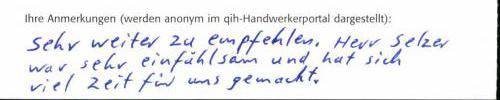 Ihre Anmerkungen (werden anonym im qih-Handwerkerportal dargestellt):
sehr weiter zu empfehlen. Herr Selzer
war sehr einfühlsam und hat sich
viel Zeit für uns gemacht.